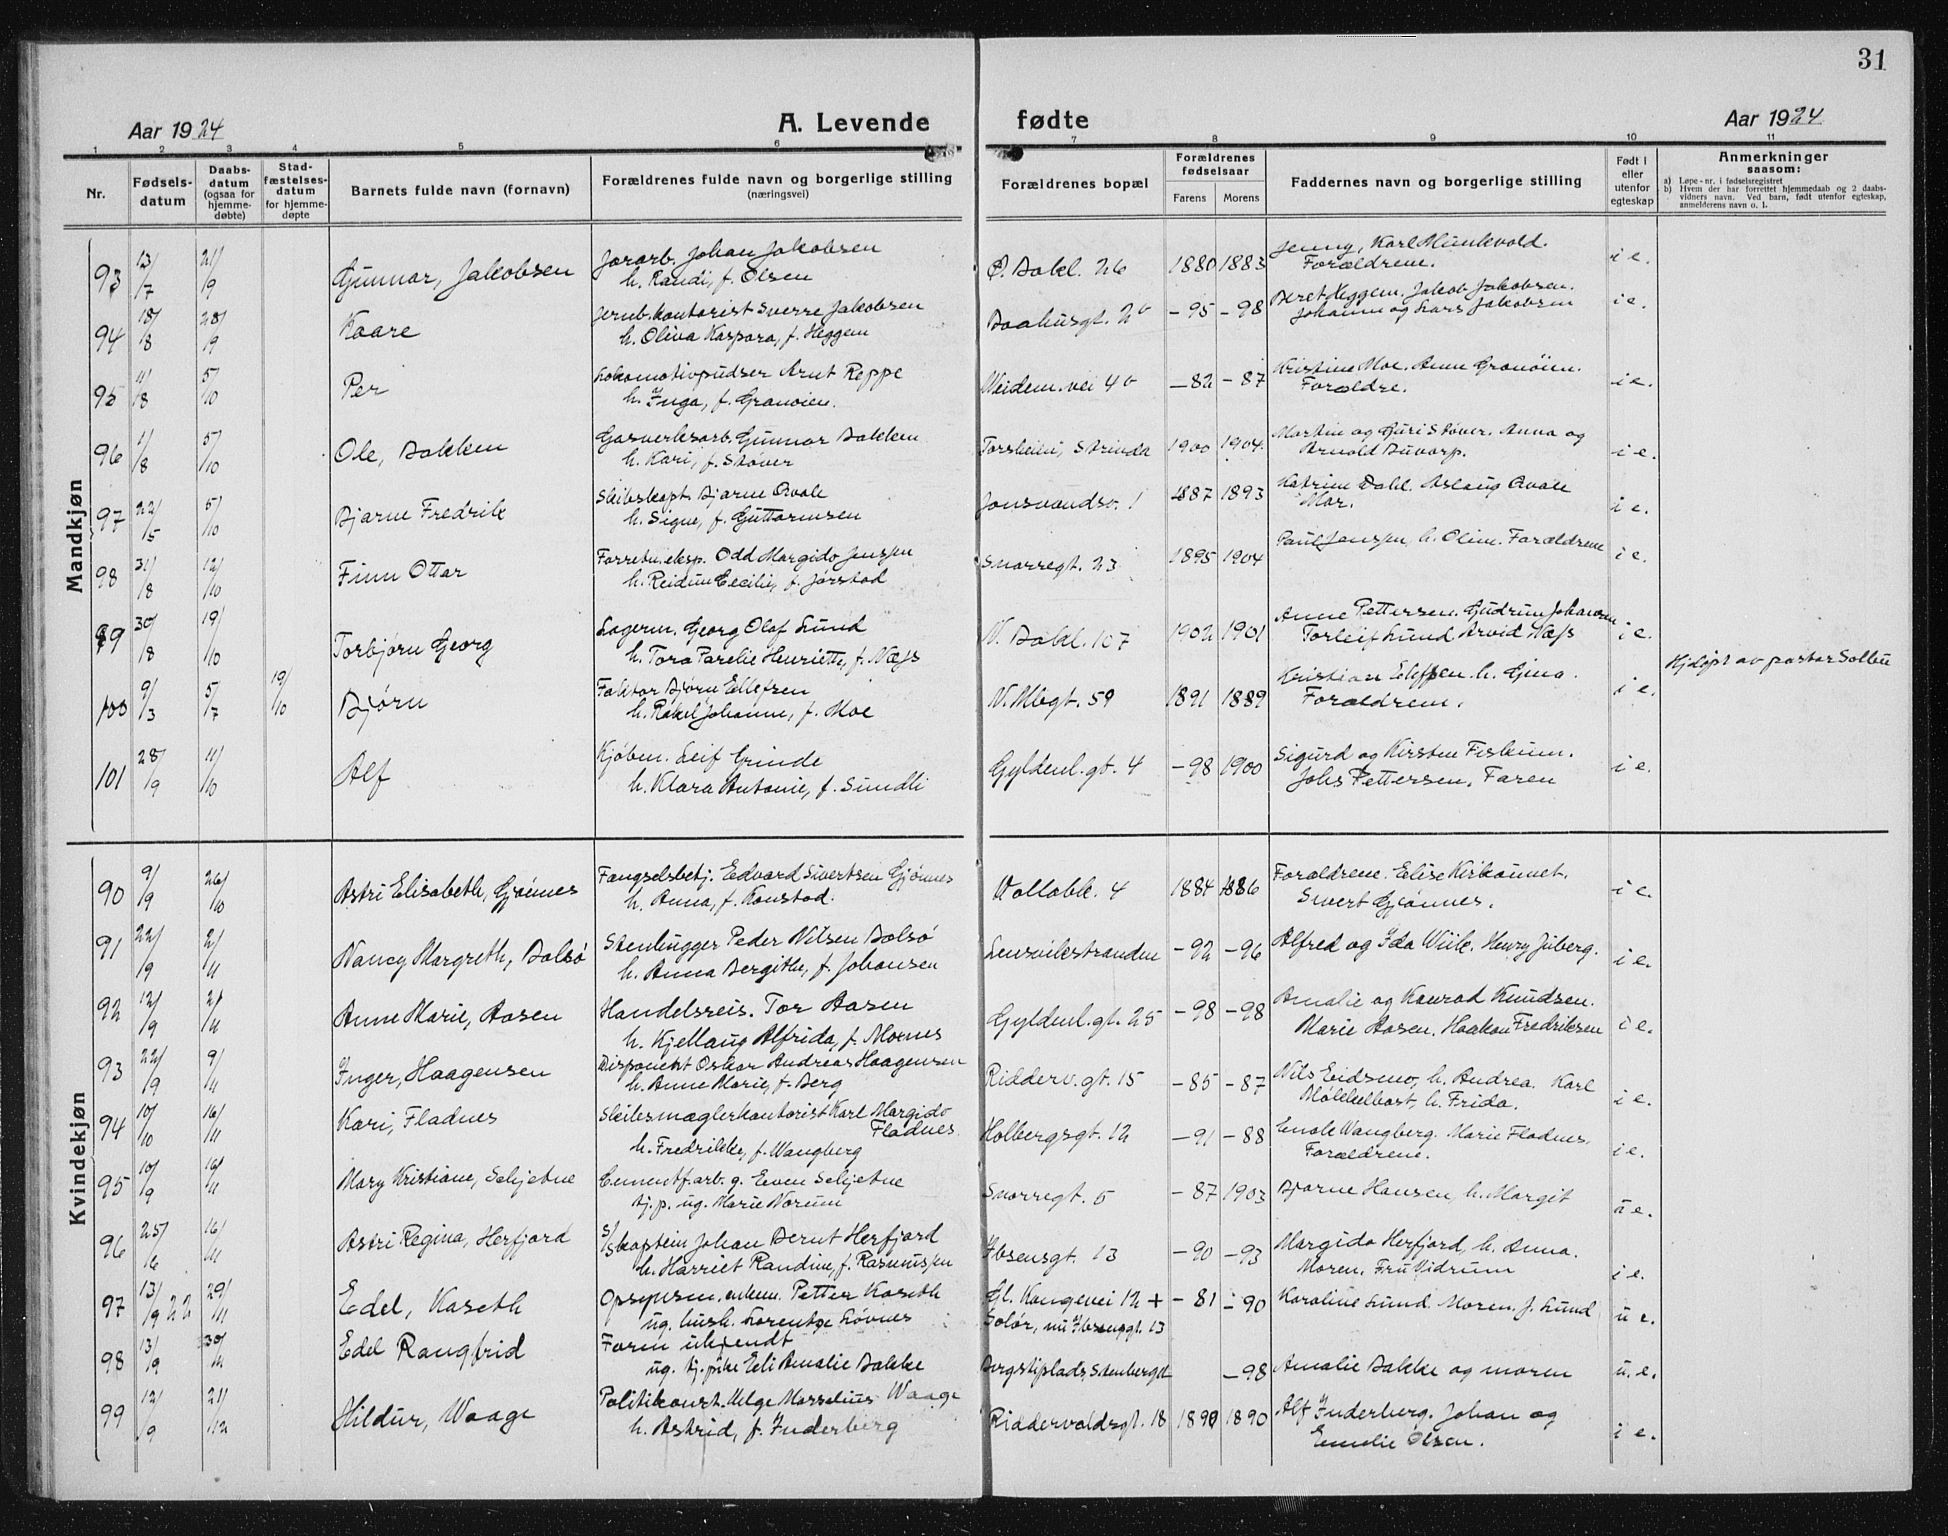 31
Aar 1924
A. Levende fødte
Aar 1924
1 2 3 4 5 6 7 8 9 10 11
Nr.
Fødsels-
datum
Daabs-
datum
(ogsaa for
hjemme-
døbte)
Stad-
fæstelses-
datum
for hjemme-
døpte
Barnets fulde navn (fornavn)
Forældrenes fulde navn og borgerlige stilling
(næringsvei)
Forældrenes bopæl
Forældrenes
fødselsaar
Farens Morens
Faddernes navn og borgerlige stilling
Født i
eller
utenfor
egteskap
Anmerkninger
saasom:
a) Løpe-nr. i fødselsregistret
b) Hvem der har forrettet hjemmedaab og 2 daabs-
vidners navn. Ved barn, født utenfor egteskap,
anmelderens navn o. l.
Mandkjøn
93 13/7 21/9 Gunnar, Jakobsen Jørarb. Johan Jakobsen Ø. Bakl. 26 1880 1883 Jenny, Karl Munkvold. i e.
h. Randi, f. Olsen Forældrene.
94 18/8 28/9 Kaare Jernb.kontorist Sverre Jakobsen Baahusgt. 2b -95 -98 Beret Heggem. Jakob Jakobsen. i e.
h. Oliva Kaspara, f. Heggem Johanne og Lars Jakobsen
95 11/8 5/10 Per Lokomotivpudser Arnt Reppe Weidem.vei 4b -82 -87 Kristine Moe. Anne Granøien. i e.
h. Inga, f. Granøien. Forældre.
96 1/8 5/10 Ole, Bakken Gasverksarb. Gunnar Bakken Torsheim, Strinda 1900 1904 Martin og Guri Støver. Anna og i e.
h. Kari, f. Støver Arnold Buvarp.
97 22/5 5/10 Bjarne Fredrik Skibskapt. Bjarne Qvale Jonsvandsv. 1 1887 1893 Katrine Dahl. Aslaug Qvale i e.
h. Signe, f. Guttormsen Mor.
98 31/8 12/10 Finn Ottar Forretn.eksp. Odd Margido Jenssen Snorregt. 23 1895 1904 Paul Jenssen, h. Oline. Forældrene i e.
h. Reidun Cecilie, f. Jørstad
99 30/8 19/10 Torbjørn Georg Lagerm. Georg Olaf Lund N. Bakl. 107 1902 1901 Anne Pettersen. Gudrun Johansen i e.
h. Tora Parelie Henriette, f. Næss Torleif Lund Arvid Næss
100 9/3 5/7 19/10 Bjørn Faktor Bjørn Ellefsen N. Mbgt. 59 1891 1889 Kristian Ellefsen h. Gina. i e. Hjdøpt av pastor Solbu
h. Rakel Johanne, f. Moe Forældrene.
101 28/9 11/10 Alf Kjøbm. Leif Grinde Gyldenl.gt. 4 -98 1900 Sigurd og Kirsten Fiskum. i e.
h. Klara Antonie, f. Sundli Johs Pettersen. Faren
Kvindekjøn
90 9/9 26/10 Astri Elisabeth, Gjönnes Fængselsbetj. Edvard Sivertsen Gjönnes Vollabk. 4 1884 1886 Forældrene. Elise Kirkaunet. i e.
h. Anna, f. Konstad. Sivert Gjönnes.
91 22/9 2/11 Nancy Margreth, Balsö Stenhugger Peder Nilsen Balsö Lensvikstranden -92 -96 Alfred og Ida Wiik. Henry Juberg. i e.
h. Anna Bergithe, f. Johansen
92 12/9 2/11 Anne Marie, Aasen Handelsreis. Tor Aasen Gyldenl.gt. 25 -98 -98 Amalie og Konrad Knudsen. i e.
h. Kjellaug Alfrida, f. Moenes Marie Aasen. Haakon Fredriksen
93 22/9 9/11 Inger, Haagensen Disponent Oskar Andreas Haagensen Ridderv.gt. 15 -85 -87 Nils Eidsmo, h. Andrea. Karl i e.
h. Anne Marie, f. Berg Møkkelbost, h. Frida.
94 10/10 16/11 Kari, Fladnes Skibsmæglerkontorist Karl Margido Holbergsgt. 12 -91 -88 Wangberg. Marie Fladnes. i e.
Fladnes.
h. Fredrikke, f. Wangberg Forældrene.
95 10/9 16/11 Mary Kristiane, Selijetne Cementf.arb. g. Even Selijetne Snorregt. 5 -87 1903 Bjarne Hansen, h. Margit u e.
tj.p. ug. Marie Norum
96 25/6 16/11 Astri Regina, Herfjord S/Skaptein Johan Bernt Herfjord Ibsensgt. 13 -90 -93 Margido Herfjord, h. Anna. i e.
h. Harriet Randine, f. Rasmussen Moren. Fru Vidrum
97 13/9 22 29/11 Edel, Kaseth Opsynsm. enkem. Petter Kaseth Gl. Kongevei 12 + -81 -90 Karoline Lund. Moren. J. Lund u e.
ug. hush. Lorentze Løvnes Solør, nu Ibsensgt. 13
98 13/9 30/11 Edel Rangfrid Faren ukjendt Bergstiplads, Stenberggt -98 Amalie Bakke og moren u. e.
ug. tj.pike Eli Amalie Bakke
99 12/9 21/12 Hildur, Waage Politikonst. Helge Marselius Waage Riddervoldsgt. 18 1890 1890 Alf Inderberg. Johan og i e.
h. Astrid, f. Inderberg Emelie Olsen.